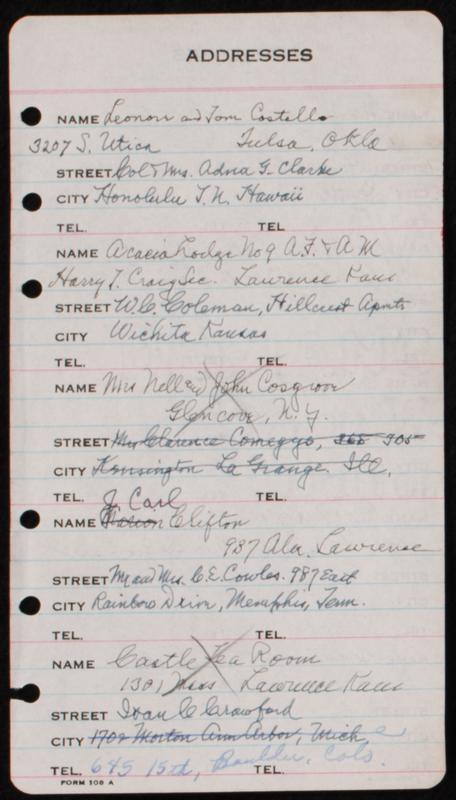 ADDRESSES
NAME Leonon and Tom Costello
3207 S. Utica Tulsa, Okla
STREET Col & Mrs. Adna G. Clarke
CITY Honolulu T.H. Hawaii
TEL. TEL
NAME Acacia Lodge No 9 A.F. & A M
Harry T. Craig Sec. Lawrence Kans
STREET W.C. Coleman, Hillcrest Apmts
CITY Wichita Kansas
TEL. TEL.
NAME Mrs Nell and John Cosgrove
Glencove, N.Y.
STREET Mrs Clarence Comeggo, 365 305
CITY Kensington La Grange, Ill.
TEL. J. Carl TEL.
NAME Clifton
987 Ala. Lawrence
STREET Mr and Mrs. C.E. Cowles. 987 East
CITY Rainbow Drive, Memphis, Tenn.
TEL. TEL.
NAME Castle Tea Room
1301 Mass Lawrence Kans
STREET Ivan C Crawford
CITY 1702 Morton Ann Arbor, Mich
TEL. 645 15th, Boulder, Colo. TEL.
FORM 108 A